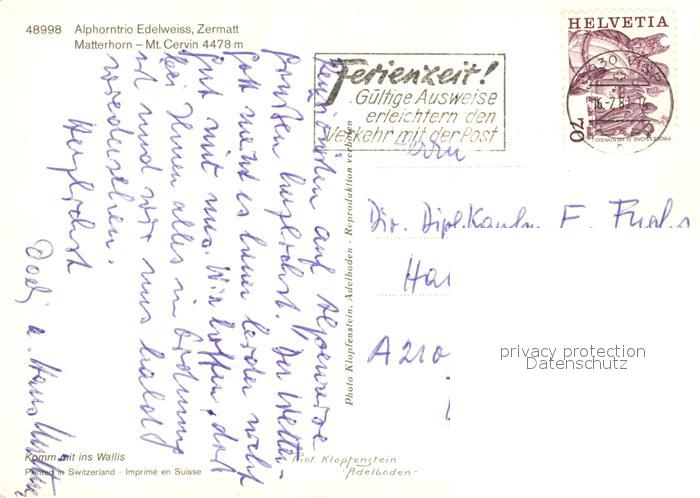 48998 Alphorntrio Edelweiss, Zermatt
Matterhorn – Mt. Cervin 4478 m
Ferienzeit!
Gültige Ausweise
erleichtern den
Verkehr mit der Post
HELVETIA
70
auf Alpenreise
grüßen herzlichst. Der Wetter-
gott meint es heuer leider nicht
gut mit uns. Wir hoffen, daß
bei Ihnen alles in Ordnung
ist und wir uns bald
wiedersehen.
Herzlichst
u. Hans
Photo Klopfenstein, Adelboden - Reproduktion verboten
Herrn
Dir. Dipl. Kaufm. F. Fuchs
Ha
A 210
privacy protection
Datenschutz
Komm mit ins Wallis
Printed in Switzerland - Imprimé en Suisse
Phot. Klopfenstein
Adelboden